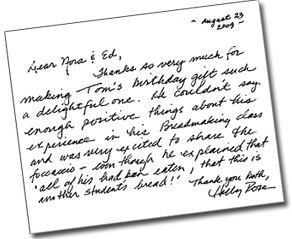 ~ August 23
2009 ~
Dear Nora & Ed,
Thanks so very much for
making Tom's birthday gift such
a delightful one. He couldn't say
enough positive things about his
experience in his Breadmaking class
and was very excited to share the
focaccia - even though he explained that
"all of his had been eaten, that this is
another student's bread!" Thank you both,
Rosa